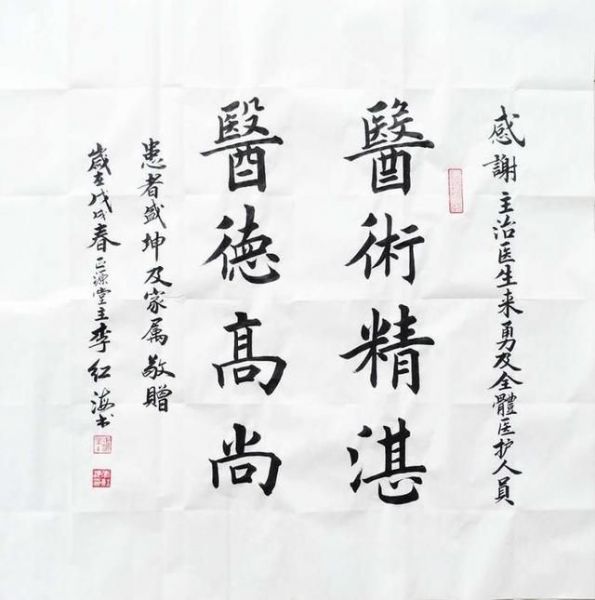 感謝主治医生来勇及全體医护人員
醫術精湛
醫德高尚
患者盛坤及家属敬贈
歲在戊戌春正源堂主李红海书